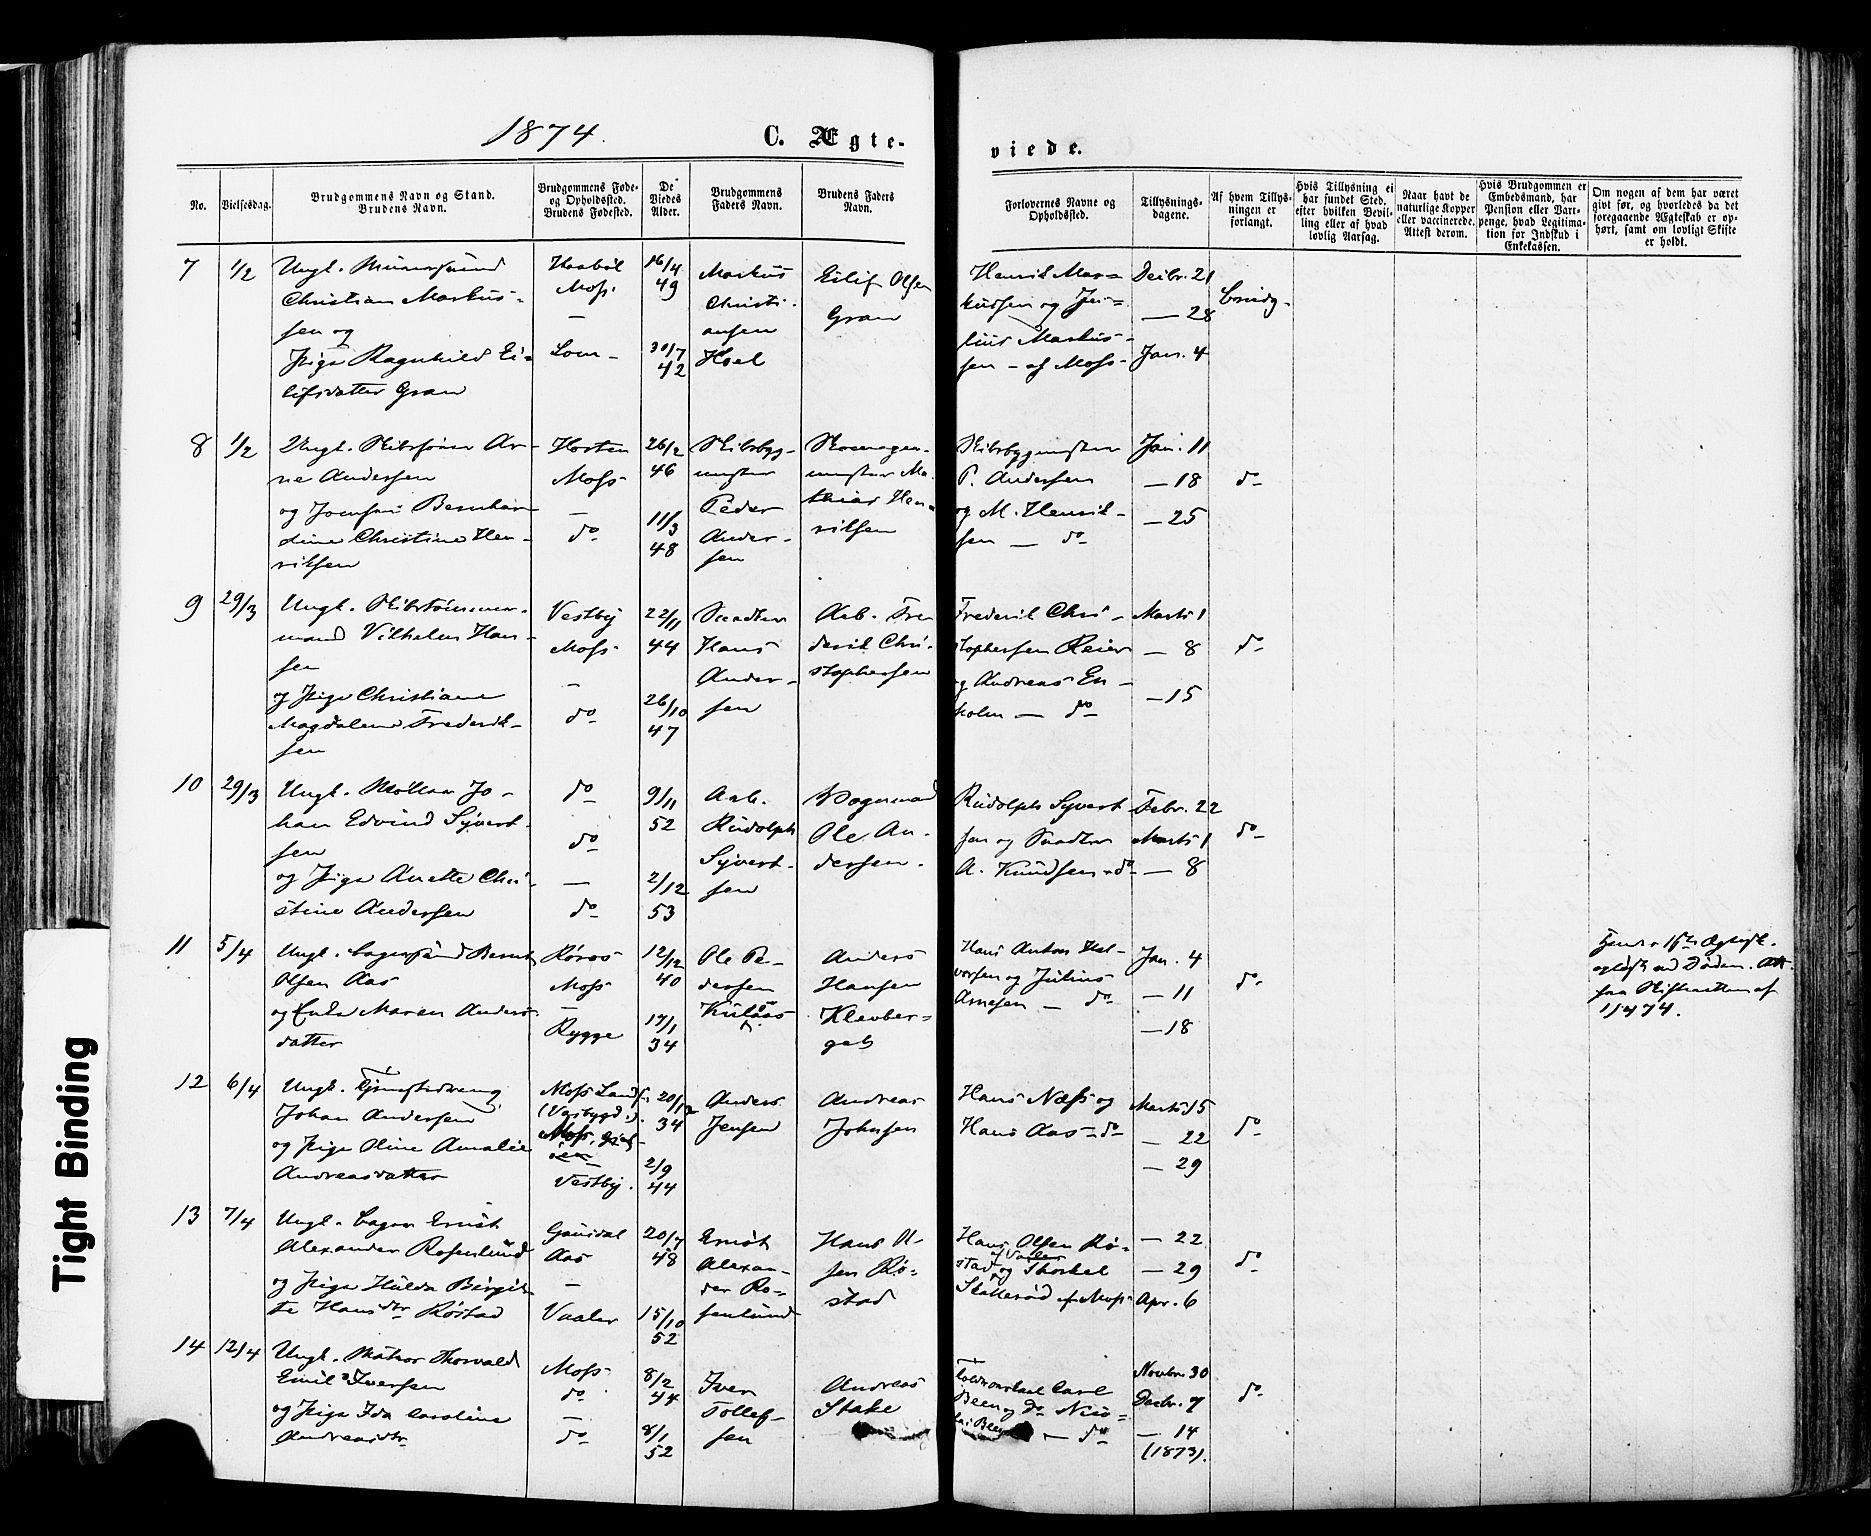 1874.
C. Ægte-
viede.
No.
Vielsesdag.
Brudgommens Navn og Stand.
Brudens Navn.
Brudgommens Føde-
og Opholdssted.
Brudens Fødested.
De
Viedes
Alder.
Brudgommens
Faders Navn.
Brudens Faders
Navn.
Forlovernes Navne og
Opholdssted.
Tillysnings-
dagene.
Af hvem Tillys-
ningen er
forlangt.
Hvis Tillysning ei
har fundet Sted,
efter hvilken Bevil-
ling eller af hvad
lovlig Aarsag.
Naar havt de
naturlige Kopper
eller vaccinerede.
Attest derom.
Hvis Brudgommen er
Embedsmand, har
Pension eller Vart-
penge, hvad Legitima-
tion for Indskud i
Enkekassen.
Om nogen af dem har været
givt før, og hvorledes da det
foregaaende Ægteskab er op-
hørt, samt om lovligt Skifte
er holdt.
7
1/2
Ungk.
Christian Markus-
sen og
Pige Ragnhild Ei-
lifsdatter Gran
Haabøl
Moss.
—
Lom
16/4
49
30/7
42
Markus
Christi-
ansen
Hoel
Eilif Olsen
Gran
Henrik Mar-
kussen og Ju-
lius Markus-
sen - af Moss
Decbr. 21
— 28
Jan. 4
Brudg.
8
1/2
Ungk. Skibsfører Ar-
ne Andersen
og Jomfru Bernhar-
dine Christine Hen-
riksen
Horten
Moss
—
do
26/2
46
11/3
48
Skibsbyg-
mester
Peder
Ander-
sen
mester Ma-
thias Hen-
riksen
Skibsbygmester
P. Andersen
og M. Henrik-
sen — do
Jan. 11
— 18
— 25
do
9
29/3
Ungk. Skibstømmer-
mand Vilhelm Han-
sen
og Pige Christiane
Magdalene Frederik-
sen
Vestby
Moss
—
do
22/11
44
26/10
47
Hans
Ander-
sen
Arb. Fre
derik Chri-
stophersen
Frederik Chri-
stophersen Reier
og Andreas En-
holm — do
Marts 1
— 8
— 15
do
10
29/3
Ungk. Møller Jo-
han Edvind Syvert-
sen
og Pige Anette Chri-
stine Andersen
do
do
—
do
9/11
52
2/12
53
Arb.
Rudolph
Syvert-
sen
Vognmand
Ole An-
dersen.
Rudolph Syvert
sen og
A. Knudsen - do
Febr. 22
Marts 1
— 8
do
11
5/4
Ungk. Bagersvend Bernt
Olsen Aas
og Enke Maren Anders
datter
Røros
Moss
—
Rygge
12/12
40
17/1
34
Ole Pe-
dersen
Anders
Hansen
Klevber-
get
Hans Anton Hal-
vorsen og Julius
Arnesen — do
Jan. 4
— 11
— 18
do
Hendes 1ste Ægtesk.
opløst ved Døden. Att.
fra Skifteretten af
12
6/4
Ungk. Tjenestedreng
Johan Andersen
og Pige Oline Amalie
Andreasdatter
Moss Lands.
Vestby.
20/12
34
2/9
44
Anders
Jensen
Andreas
Johnsen
Hans Næss og
Hans Aas - do
Marts 15
— 22
— 29
do
13
7/4
Ungk. Bager Ernst
Alexander Rosenlund
og Pige Hulda Birgit-
te Hansdtr Røstad
Gausdal
Aas
—
Vaaler
20/7
48
15/10
52
Ernst
Alexan-
der Ro-
senlund
Hans Ol-
sen Rø-
stad
Hans Olsen Rø-
stad af Vaaler og Thorkel
af Moss
— 22
— 29
Apr. 6
do
14
12/4
Ungk. Matros Thorvald
Emil Iversen
og Pige Ida Caroline
Andreasdtr
Moss
do
—
do
8/2
44
8/1
52
Iver
Tollef-
sen
Andreas
Stake
Carl
— do
Novbr. 30
Decbr. 7
— 14
(1873).
do
Tight Binding